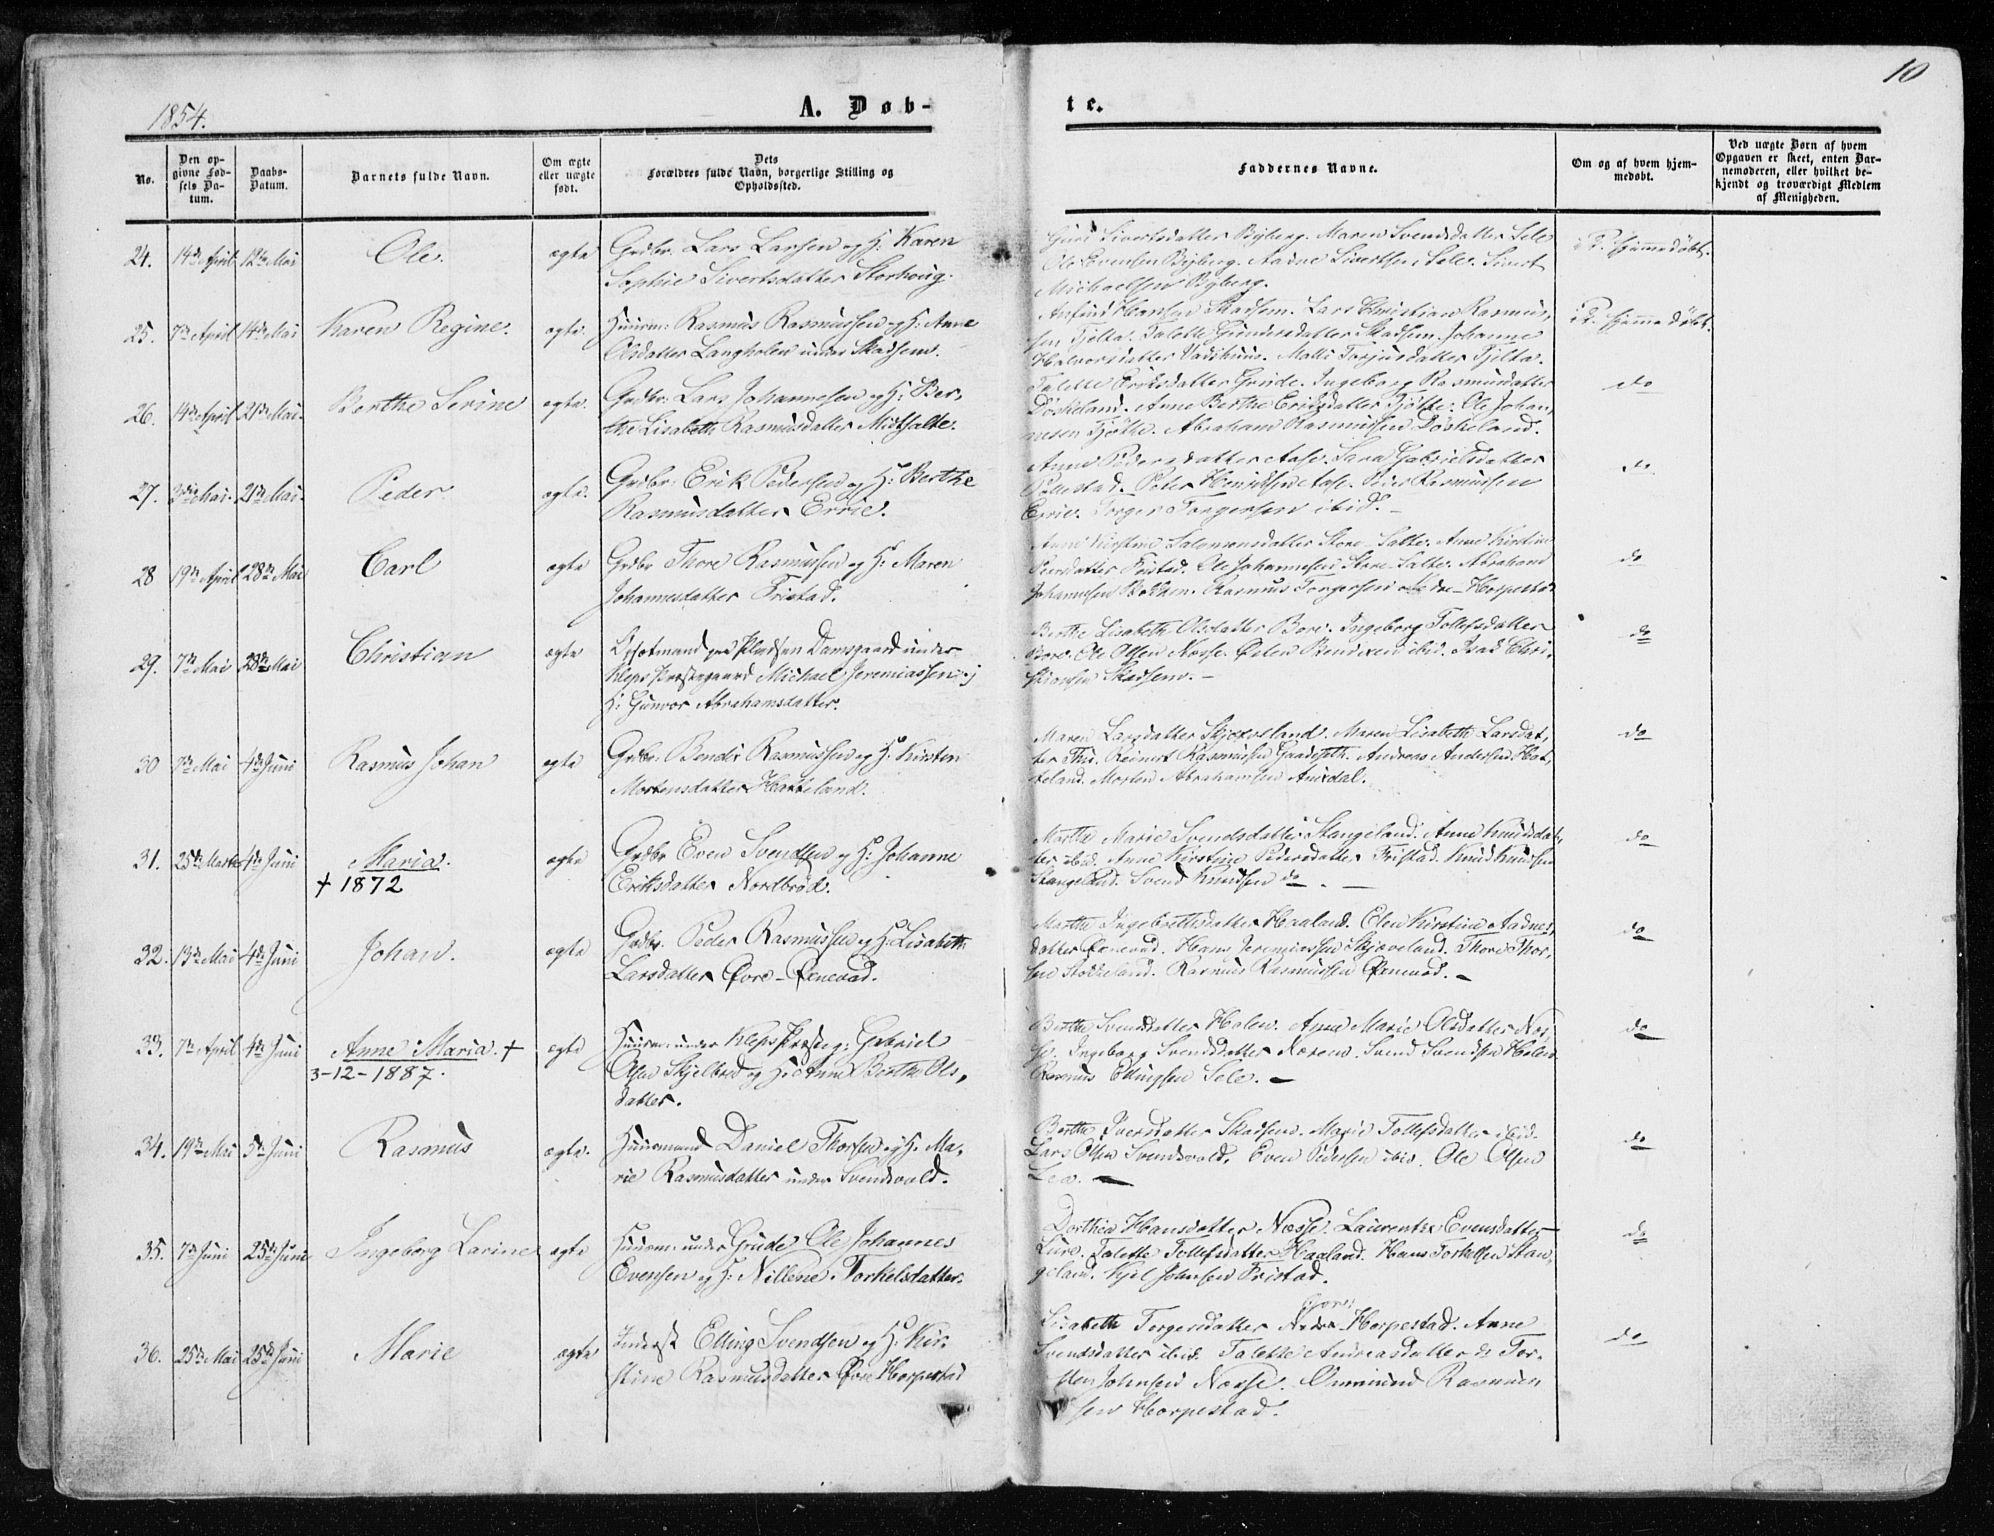 1854.
A. Døb-
te.
10
No.
Den op-
givne Fød-
sels Da-
tum.
Daabs-
Datum.
Barnets fulde Navn.
Om ægte
eller uægte
født.
Dets
Forældres fulde Navn, borgerlige Stilling og
Opholdssted.
Faddernes Navne.
Om og af hvem hjem-
medøbt.
Ved uægte Børn af hvem
Opgaven er skeet, enten Bar-
nemoderen, eller hvilket be-
kjendt og troværdigt Medlem
af Menigheden.
24. 14de April 12te Mai Ole. ægte
Grdbr. Lars Larsen og H: Karen
Sophie Sivertsdatter Storhoug.
Guri Sivertsdatter Byberg. Maren Svendsdatter Sele
Ole Evensen Byberg. Aadne Sivertsen Sele. Sivert
Michaelsen Byberg.
i. Hjemmedøbt.
25. 7de April 14de Mai Karen Regine. ægte.
Huusm: Rasmus Rasmussen og H: Anne
Olsdatter Langholen under Skadsem.
Anfind Hansen Skadsem. Lars Christian Rasmus-
sen Tjelta. Talette Gundersdatter Skadsem. Johanne
Halvorsdatter Vadshuus. Malli Torjusdatter Tjelta.
i. Hjemmedøbt.
26. 14de April 21de Mai. Berthe Serine ægte.
Grdbr: Lars Johannesen og H: Ber-
the Lisabeth Rasmusdatter Midtsalte.
Talette Eriksdatter Grude. Ingeborg Rasmusdatter
Døskeland. Anne Berthe Eriksdatter Tjøtte. Ole Johan-
nesen Tjøtte. Abraham Rasmussen Døskeland.
do
27. 3die Mai. 21de Mai. Peder. ægte.
Grdbr: Erik Pedersen og H: Berthe
Rasmusdatter Erie.
Anne Pedersdatter Aase. Sara Gabrielsdatter
Pollestad. Peter Henriksen Aase. Peder Rasmussen
Erie. Torger Torgersen ibid. –
do.
28 19de April 28de Mai Carl ægte
Grdbr Thore Rasmussen og H: Maren
Johannesdatter Fristad.
Anne Kirstine Salomonsdatter Store-Salte. Anne Kirstine
Peersdatter Fristad. Ole Johannesen Store-Salte. Abraham
Johannesen Bokken. Rasmus Torgersen Nedre-Horpestad
do
29. 7de Mai 28de Mai Christian ægte
Lejetmand paa Pladsen Damsgaard under
Kleps Præstegaard Michael Jeremiassen og
H: Gunvor Abrahamsdatter.
Berthe Lisabeth Olsdatter Bore. Ingeborg Tollefsdatter
Bore. Ole Olsen Næsse. Peder Bendixen ibid. Isak Chri-
stiansen Skadsem. –
do
30 7de Mai 4de Juni Rasmus Johan ægte
Grdbr. Bendix Rasmussen og H: Kirsten
Mortensdatter Hatteland.
Maren Larsdatter Skjæveland. Maren Lisabeth Larsdat-
ter Thu. Reinert Rasmussen Gaadeseth. Andreas Andersen Hat-
teland. Morten Abrahamsen Anisdal.
do
31. 25de Marts 4de Juni Maria. ægte
† 1872
Grdbr Even Svendsen og H: Johanne
Eriksdatter Nordbrød.
Marthe Marie Svendsdatter Stangeland. Anne Knudsdat-
ter ibid. Anne Kirstine Pedersdatter Fristad. Knud Knudsen
Stangeland. Svend Knudsen do. –
do
32. 13de Mai 4de Juni Johan. ægte
Grdbr. Peder Rasmussen og H: Lisabeth
Larsdatter Øvre-Øxnevad.
Marthe Ingebretsdatter Haaland. Elen Kirstine Aadnes-
datter Øxnevad. Hans Jeremiassen Skjæveland. Thore Thor-
sen Stokkeland. Rasmus Rasmussen Øxnevad. –
do
33. 7de April 4de Juni Anne Maria. † ægte
3-12-1887.
Huusm: under Kleps Præsteg: Gabriel
Olsen Skjelbred og H: Anne Berthe Ols-
datter.
Berthe Svendsdatter Holen. Anne Marie Olsdatter Næs-
se. Ingeborg Svendsdatter Næsen. Svend Svendsen Holen
Rasmus Ellingsen Sele. –
do
34. 19de Mai 5te Juni Rasmus ægte.
Huusmand Daniel Thorsen og H: Ma-
rie Rasmusdatter under Svendsvold.
Berthe Iversdatter Skadsem. Marie Tollefsdatter ibid.
Lars Olsen Svendsvold. Even Pedersen ibid. Ole Olsen
Lea. –
do
35. 7de Juni 25de Juni Ingeborg Larine ægte
Huusm: under Grude Ole Johannes
Evensen og H: Nillene Torkelsdatter.
Dorthea Hansdatter Næsse. Laurentze Evensdatter
Lure. Talette Tollefsdatter Haaland. Hans Torkelsen Stan-
geland. Kjel Johnsen Fristad.
do
36. 25de Mai 25de Juni Marie ægte
Inderst Elling Svendsen og H: Kir-
stine Rasmusdatter Øvre Horpestad
Øvre
Lisabeth Torgersdatter Nedre Horpestad. Anne
Svendsdatter ibid. Talette Andreasdatter do Tor-
sten Johnsen Næsse. Ommund Rasmus-
sen Horpestad.
do